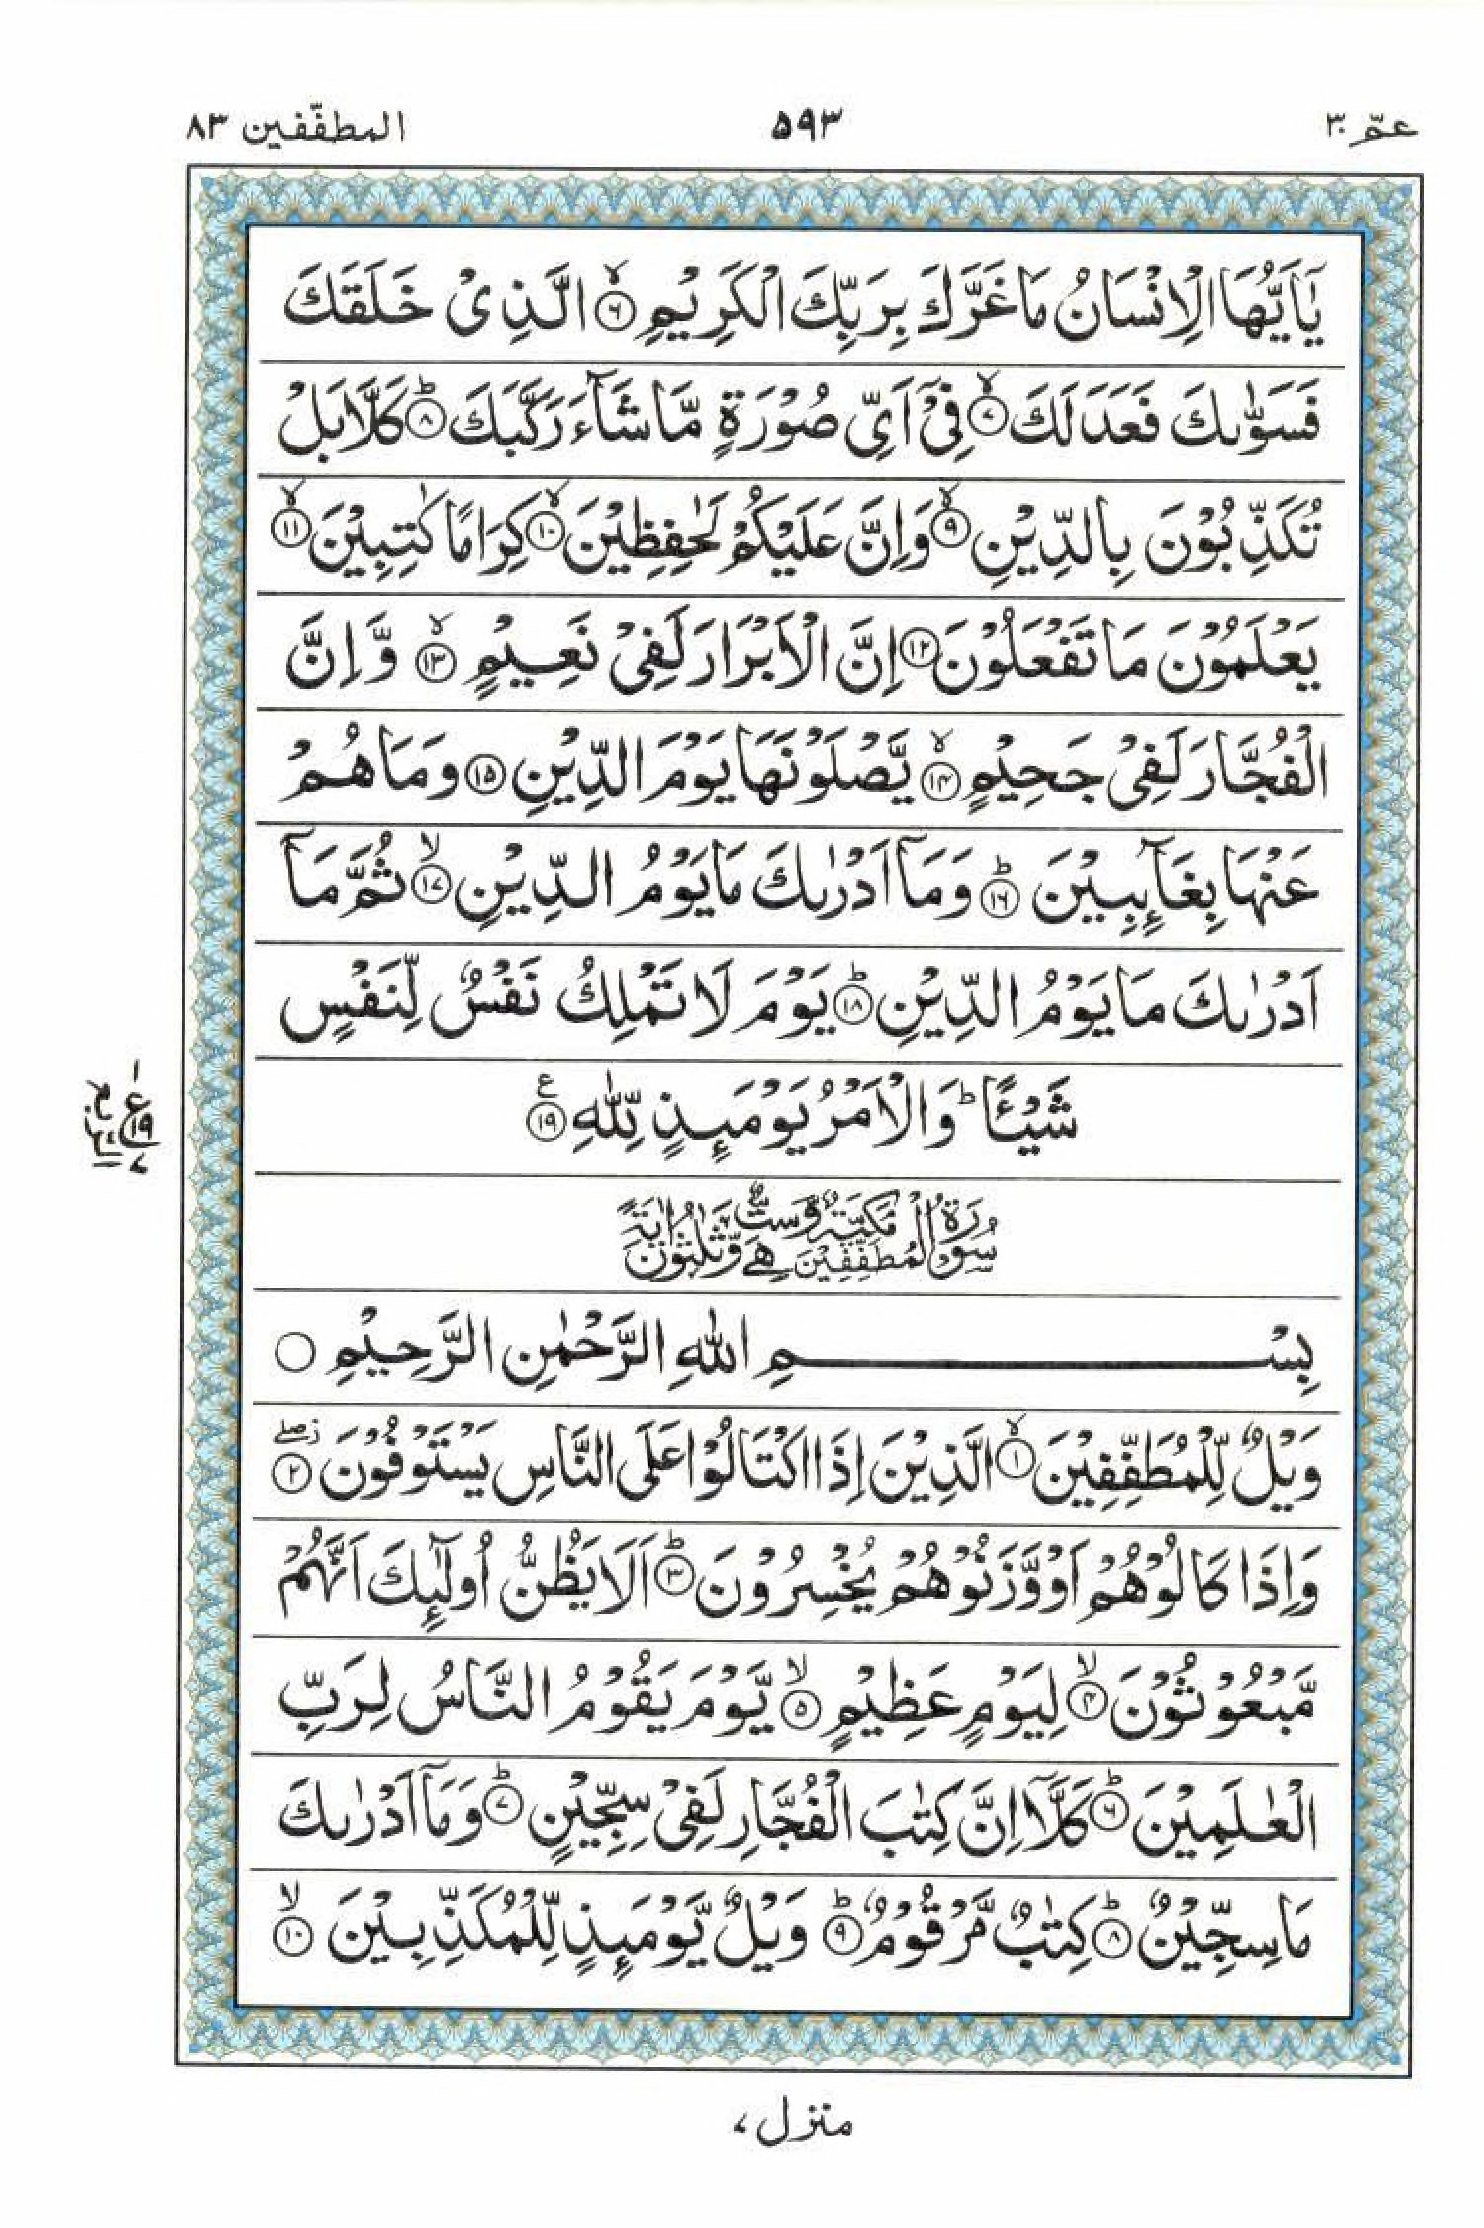 عمّ ٣٠
٥٩٣
المطفّفين ٨٣
يٰۤاَيُّهَا الْاِنْسَانُ مَا غَرَّكَ بِرَبِّكَ الْكَرِيْمِ ۙ﴿٦﴾ الَّذِىْ خَلَقَكَ
فَسَوّٰىكَ فَعَدَلَكَ ۙ﴿٧﴾ فِىْۤ اَىِّ صُوْرَةٍ مَّا شَآءَ رَكَّبَكَ ؕ﴿٨﴾ كَلَّا بَلْ
تُكَذِّبُوْنَ بِالدِّيْنِ ۙ﴿٩﴾ وَاِنَّ عَلَيْكُمْ لَحٰفِظِيْنَ ۙ﴿١٠﴾ كِرَامًا كٰتِبِيْنَ ۙ﴿١١﴾
يَعْلَمُوْنَ مَا تَفْعَلُوْنَ ﴿١٢﴾ اِنَّ الْاَبْرَارَ لَفِىْ نَعِيْمٍ ۙ﴿١٣﴾ وَّ اِنَّ
الْفُجَّارَ لَفِىْ جَحِيْمٍ ۙ﴿١٤﴾ يَّصْلَوْنَهَا يَوْمَ الدِّيْنِ ﴿١٥﴾ وَمَا هُمْ
عَنْهَا بِغَآئِبِيْنَ ؕ﴿١٦﴾ وَمَاۤ اَدْرٰىكَ مَا يَوْمُ الدِّيْنِ ۙ﴿١٧﴾ ثُمَّ مَاۤ
اَدْرٰىكَ مَا يَوْمُ الدِّيْنِ ؕ﴿١٨﴾ يَوْمَ لَا تَمْلِكُ نَفْسٌ لِّنَفْسٍ
شَيْـًٔا ؕ وَالْاَمْرُ يَوْمَئِذٍ لِّلّٰهِ ﴿١٩﴾ ع
١ ع ١٩ ٧
سُوْرَةُ الْمُطَفِّفِيْنَ مَكِّيَّةٌ وَّهِىَ سِتٌّ وَّثَلٰثُوْنَ اٰيَةً
بِسْمِ اللّٰهِ الرَّحْمٰنِ الرَّحِيْمِ ○
وَيْلٌ لِّلْمُطَفِّفِيْنَ ۙ﴿١﴾ الَّذِيْنَ اِذَا اكْتَالُوْا عَلَى النَّاسِ يَسْتَوْفُوْنَ ۖ﴿٢﴾
وَاِذَا كَالُوْهُمْ اَوْ وَّزَنُوْهُمْ يُخْسِرُوْنَ ؕ﴿٣﴾ اَلَا يَظُنُّ اُولٰٓئِكَ اَنَّهُمْ
مَّبْعُوْثُوْنَ ۙ﴿٤﴾ لِيَوْمٍ عَظِيْمٍ ۙ﴿٥﴾ يَّوْمَ يَقُوْمُ النَّاسُ لِرَبِّ
الْعٰلَمِيْنَ ؕ﴿٦﴾ كَلَّاۤ اِنَّ كِتٰبَ الْفُجَّارِ لَفِىْ سِجِّيْنٍ ؕ﴿٧﴾ وَمَاۤ اَدْرٰىكَ
مَا سِجِّيْنٌ ؕ﴿٨﴾ كِتٰبٌ مَّرْقُوْمٌ ؕ﴿٩﴾ وَيْلٌ يَّوْمَئِذٍ لِّلْمُكَذِّبِيْنَ ۙ﴿١٠﴾
منزل ٧